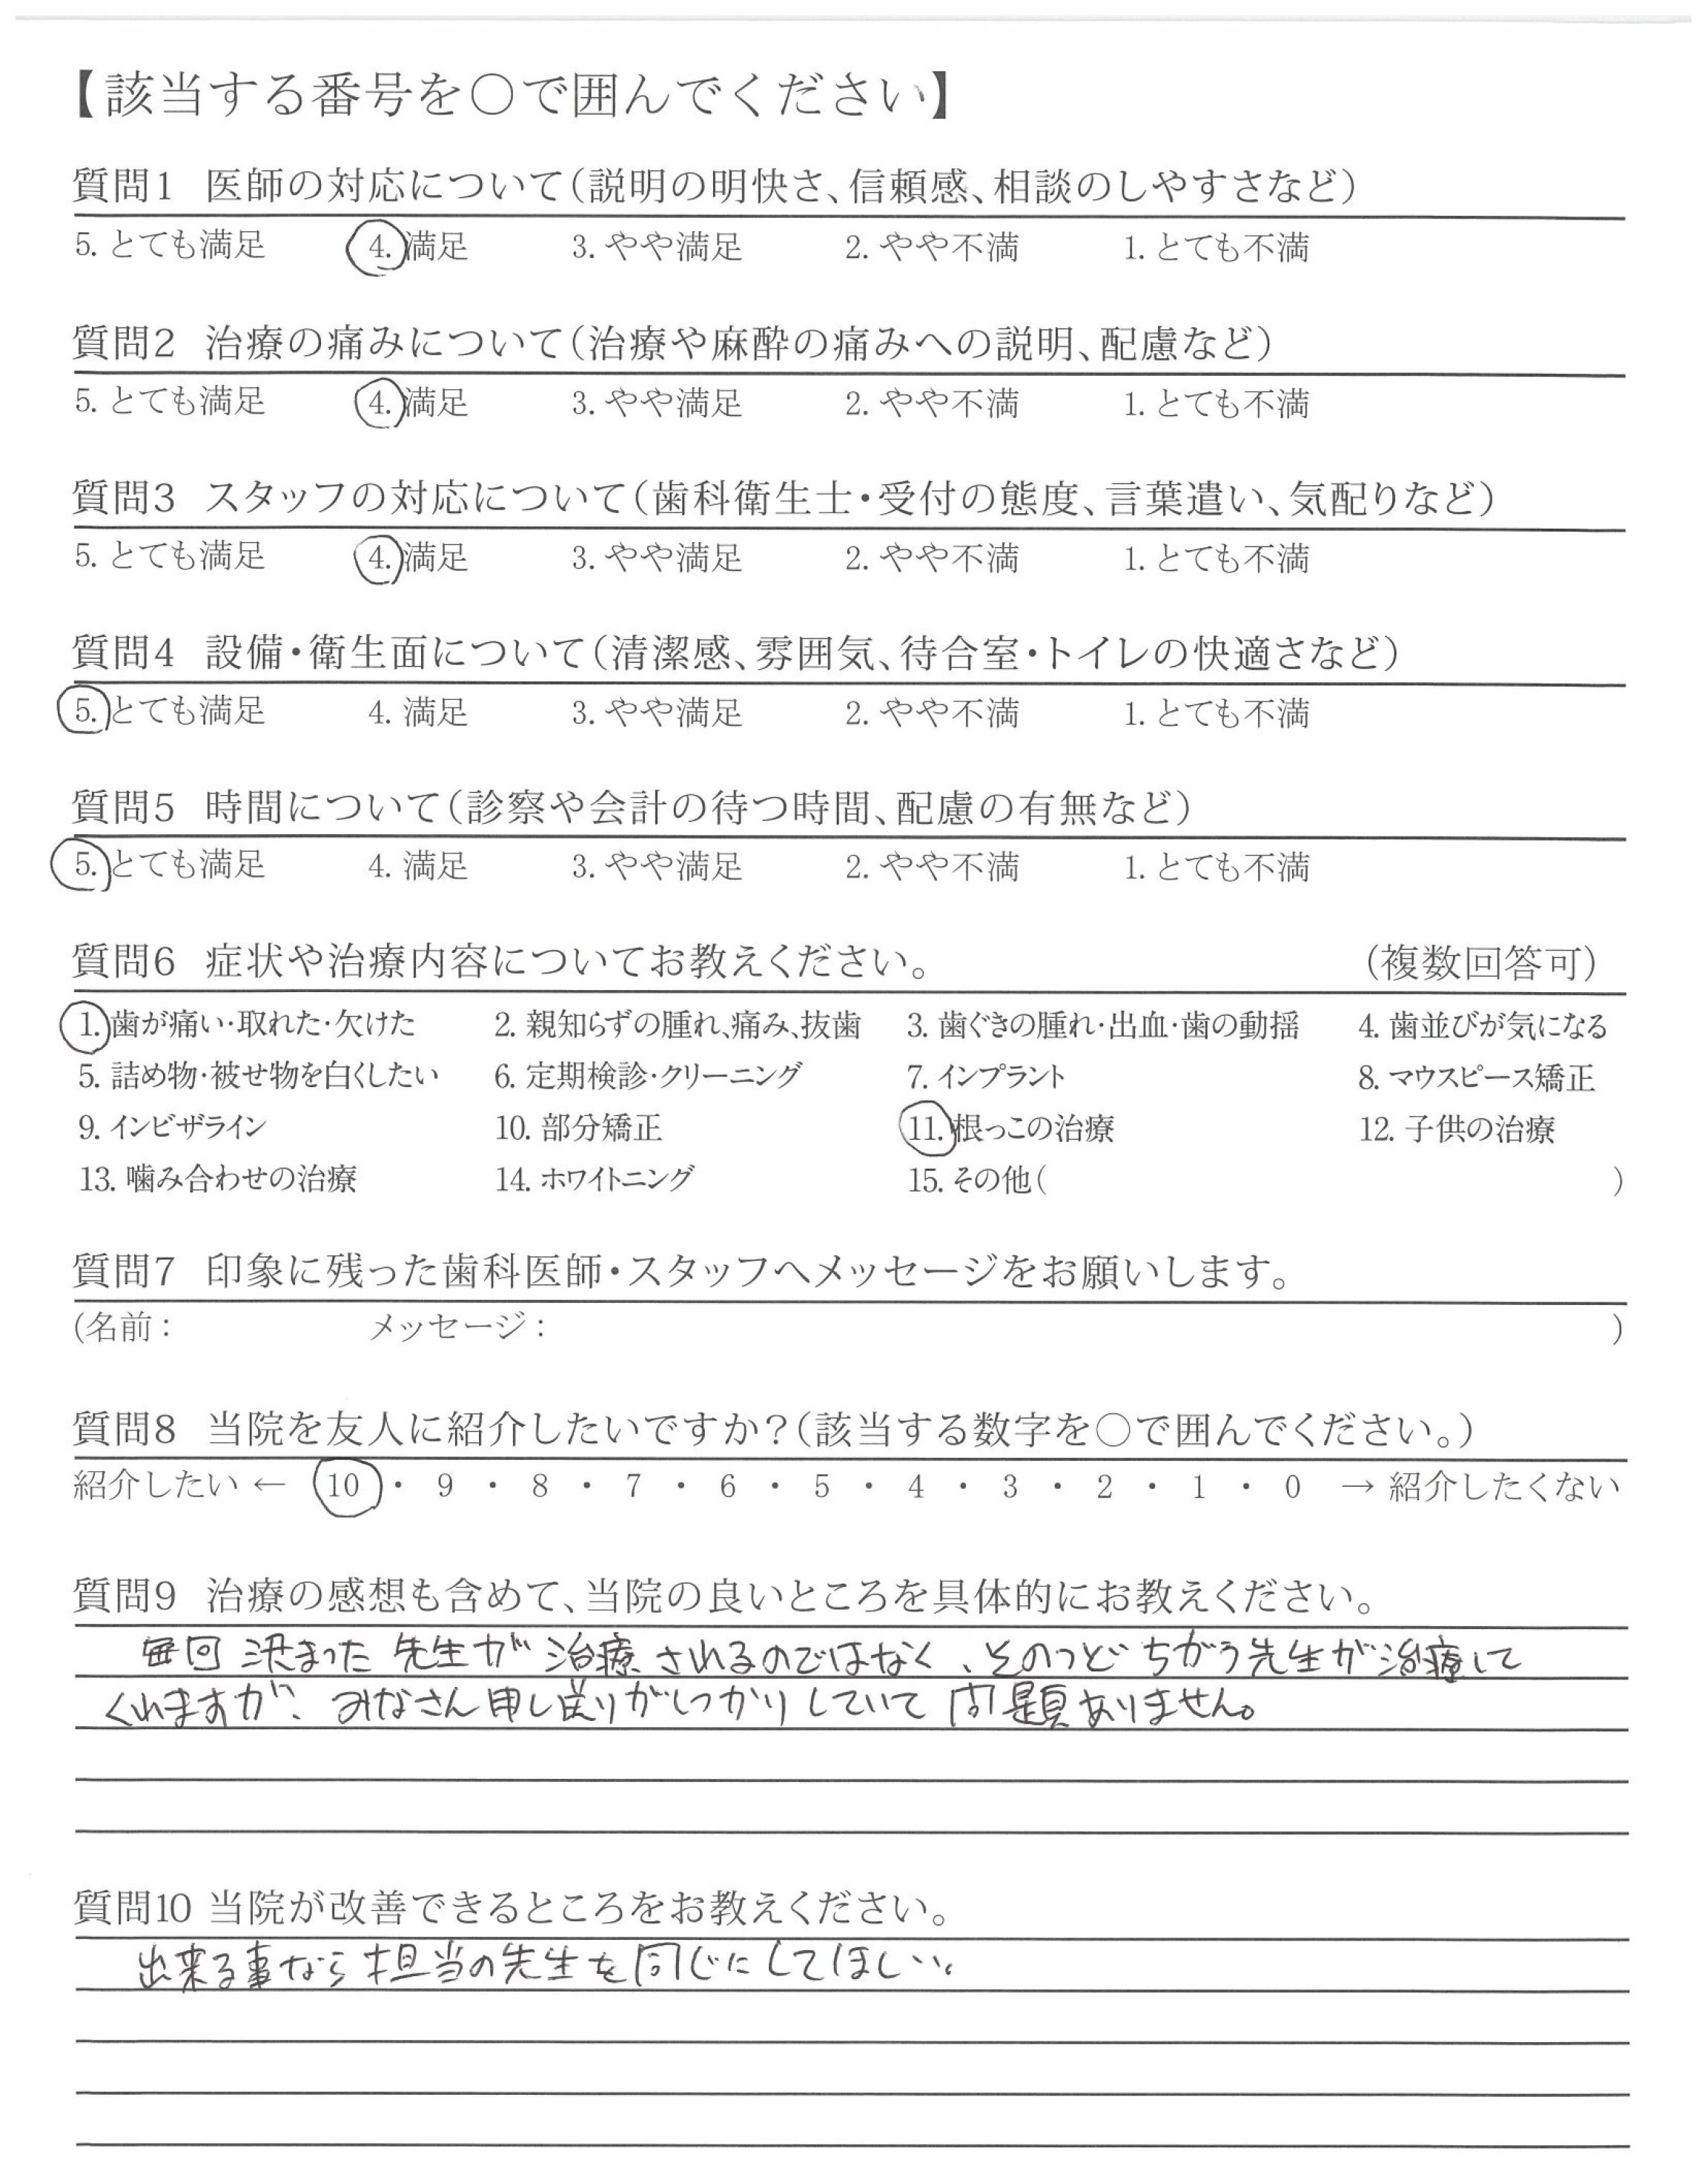 【該当する番号を○で囲んでください】
質問1 医師の対応について(説明の明快さ、信頼感、相談のしやすさなど)
5. とても満足 4. 満足 3. やや満足 2. やや不満 1. とても不満
質問2 治療の痛みについて(治療や麻酔の痛みへの説明、配慮など)
5. とても満足 4. 満足 3. やや満足 2. やや不満 1. とても不満
質問3 スタッフの対応について(歯科衛生士・受付の態度、言葉遣い、気配りなど)
5. とても満足 4. 満足 3. やや満足 2. やや不満 1. とても不満
質問4 設備・衛生面について(清潔感、雰囲気、待合室・トイレの快適さなど)
5. とても満足 4. 満足 3. やや満足 2. やや不満 1. とても不満
質問5 時間について(診察や会計の待つ時間、配慮の有無など)
5. とても満足 4. 満足 3. やや満足 2. やや不満 1. とても不満
質問6 症状や治療内容についてお教えください。 (複数回答可)
1. 歯が痛い・取れた・欠けた 2. 親知らずの腫れ、痛み、抜歯 3. 歯ぐきの腫れ・出血・歯の動揺 4. 歯並びが気になる
5. 詰め物・被せ物を白くしたい 6. 定期検診・クリーニング 7. インプラント 8. マウスピース矯正
9. インビザライン 10. 部分矯正 11. 根っこの治療 12. 子供の治療
13. 噛み合わせの治療 14. ホワイトニング 15. その他( )
質問7 印象に残った歯科医師・スタッフへメッセージをお願いします。
(名前: メッセージ: )
質問8 当院を友人に紹介したいですか?(該当する数字を○で囲んでください。)
紹介したい ← 10 ・ 9 ・ 8 ・ 7 ・ 6 ・ 5 ・ 4 ・ 3 ・ 2 ・ 1 ・ 0 → 紹介したくない
質問9 治療の感想も含めて、当院の良いところを具体的にお教えください。
毎回 決まった 先生が 治療 されるのではなく、そのつど ちがう先生が治療して
くれますが、みなさん申し送りがしっかりしていて 問題ありません。
質問10 当院が改善できるところをお教えください。
出来る事なら 担当の先生を同じにしてほしい。